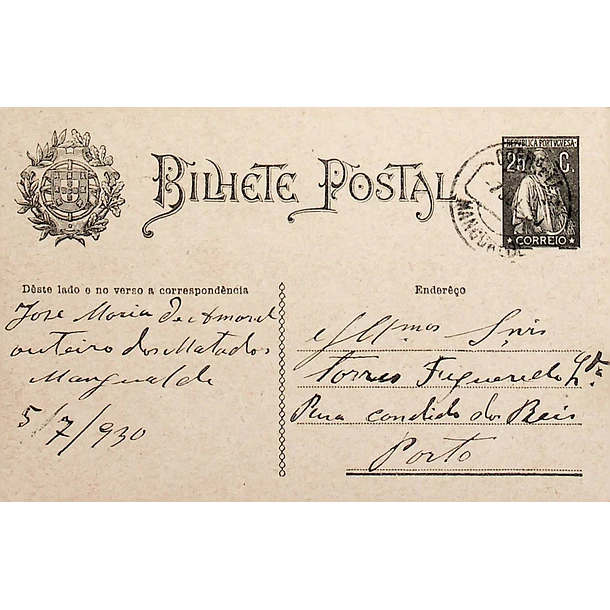 BILHETE POSTAL
REPUBLICA PORTUGUESA
25 C.
CORREIO
MANGUALDE
Dêste lado e no verso a correspondência
José Maria de Amaral
outeiro dos Matados
Mangualde
5/7/930
Enderêço
Illmos Snrs
Torres Figueredo Lda
Rua candido dos Reis
Porto